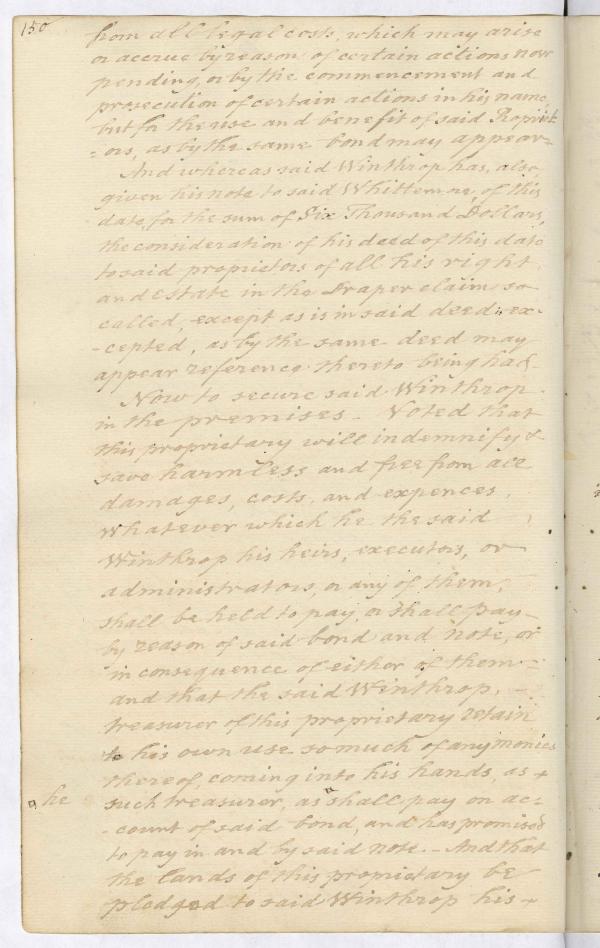 150
from all legal costs, which may arise
or accrue by reason of certain actions now
pending, or by the commencement and
prosecution of certain actions in his name,
but for the use and benefit of said Propriet
=ors, as by the same bond may appear=
And whereas said Winthrop has, also,
given his note to said Whittemore, of this
date, for the sum of Six Thousand Dollars,
the consideration of his deed of this date
to said proprietors of all his right
and estate in the Draper claim so
called, except as is in said deed ex-
-cepted, as by the same deed may
appear reference thereto being had-
Now to secure said Winthrop
in the premises- Voted that
this proprietary will indemnify &
save harmless and free from all
damages, costs, and expences,
whatever which he the said
Winthrop his heirs, executors, or
administrators, or any of them,
shall be held to pay, or shall pay-
by reason of said bond and note, or
in consequence of either of them=
and that the said Winthrop,-
treasurer of this proprietary retain
to his own use so much of any monies
thereof, coming into his hands, as
he
such treasurer, as shall pay on ac=
-count of said bond, and has promised
to pay in and by said note.- And that
the lands of this proprietary be
pledged to said Winthrop his-